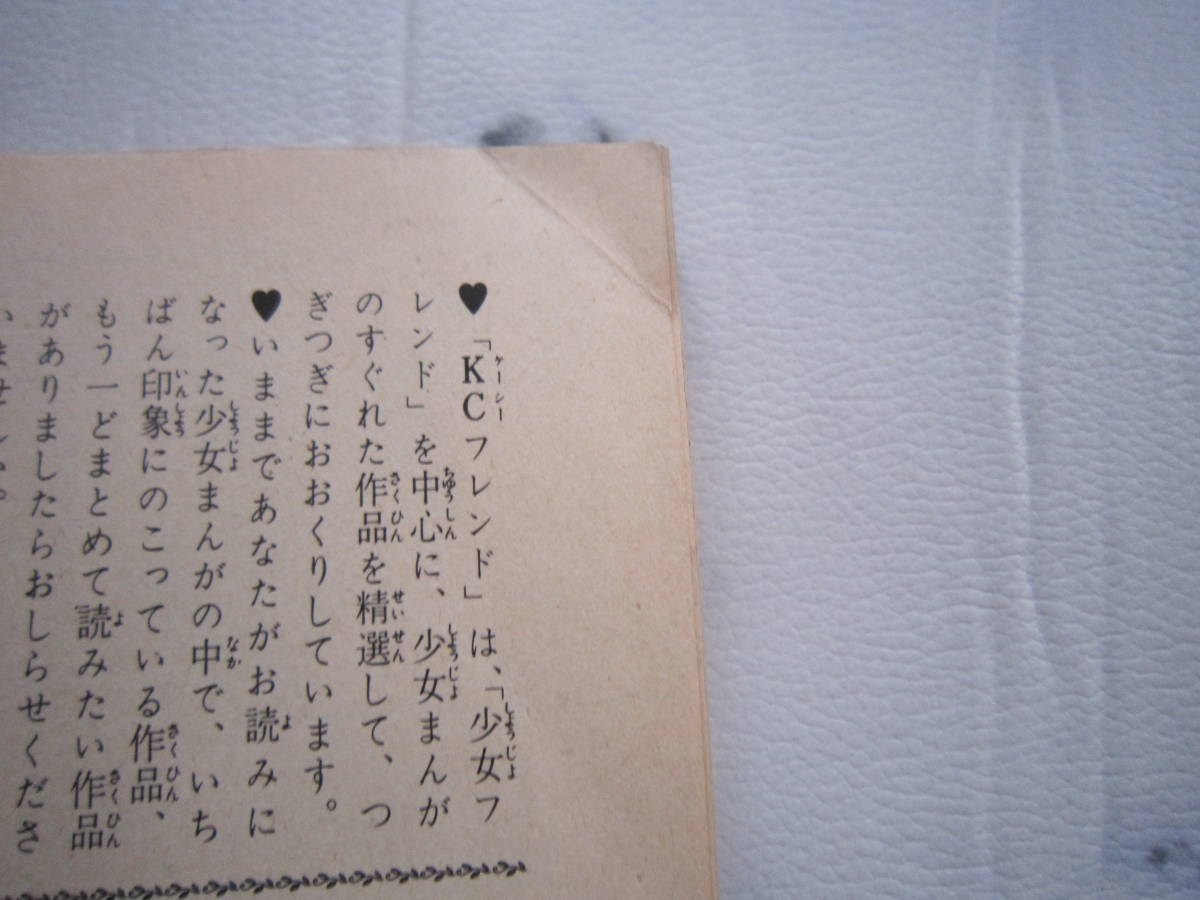 ♥「KCフレンド」は、「少女フ
レンド」を中心に、少女まんが
のすぐれた作品を精選して、つ
ぎつぎにおおくりしています。
♥いままであなたがお読みに
なった少女まんがの中で、いち
ばん印象にのこっている作品、
もう一どまとめて読みたい作品
がありましたらおしらせくださ
いませんか。